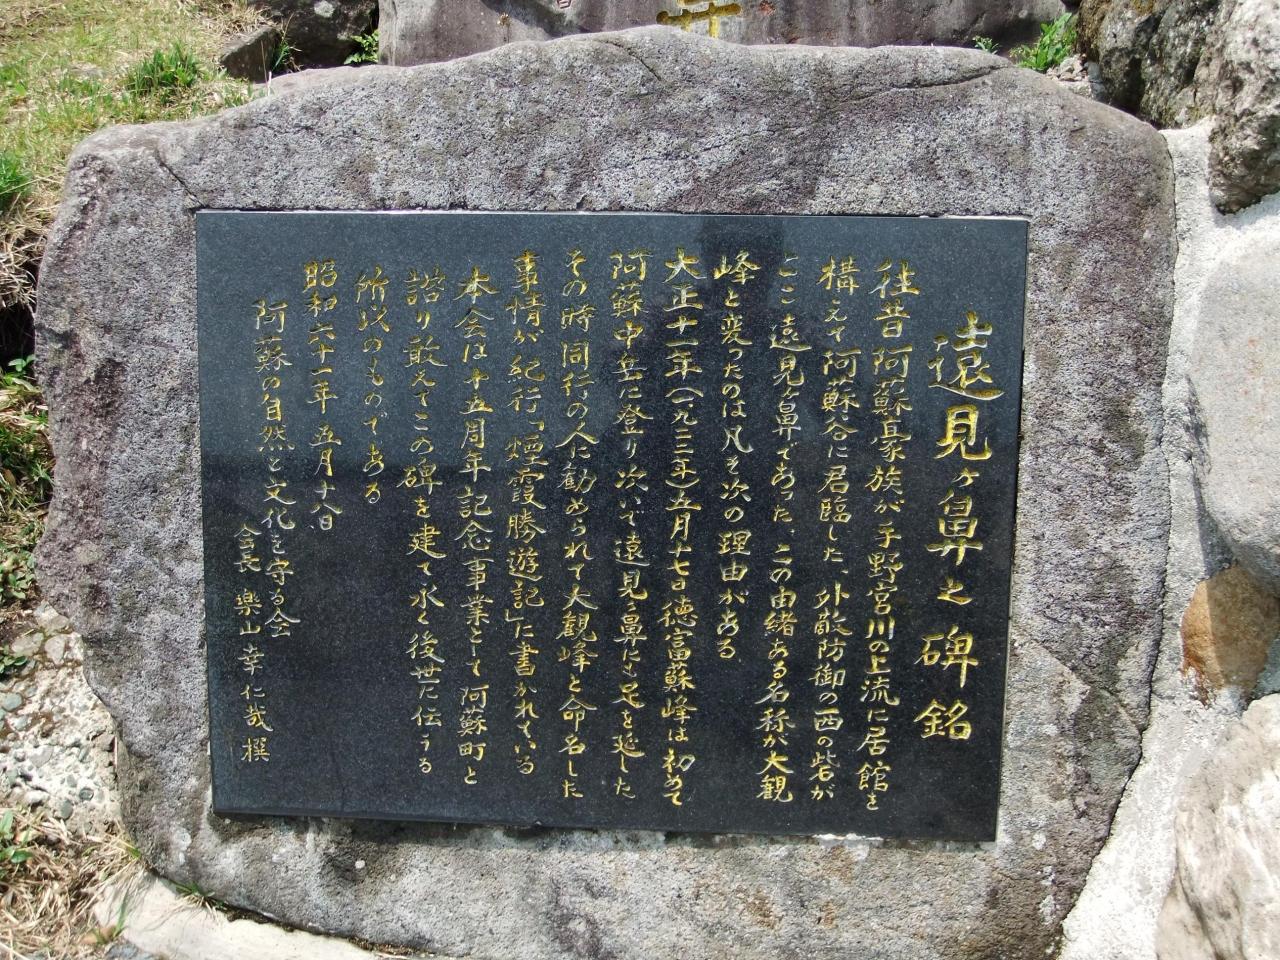 遠見ヶ鼻之碑銘
往昔阿蘇豪族が手野宮川の上流に居館を
構えて阿蘇谷に君臨した、外敵防御の西の砦が
ここ遠見ヶ鼻であった、この由緒ある名称が大観
峰と変ったのは凡そ次の理由がある
大正十一年(一九二二年)五月十七日徳富蘇峰は初めて
阿蘇中岳に登り次いで遠見ヶ鼻にも足を延した
その時同行の人に勧められて大観峰と命名した
事情が紀行「煙霞勝遊記」に書かれている
本会は十五周年記念事業として阿蘇町と
諮り敢えてこの碑を建て永く後世に伝うる
所以のものである
昭和六十一年五月十八日
阿蘇の自然と文化を守る会
会長 楽山幸仁哉撰